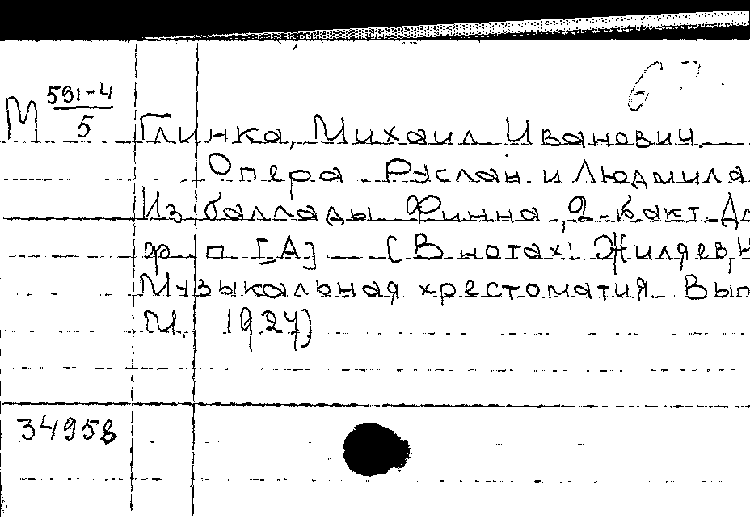 М 591-4/5
Глинка, Михаил Иванович.
Опера Руслан и Людмила
Из баллады Финна, 2-й акт. Дл
ф. п. [А] (В нотах: Жиляев, Н
Музыкальная хрестоматия. Вып
М. 1924)
34958